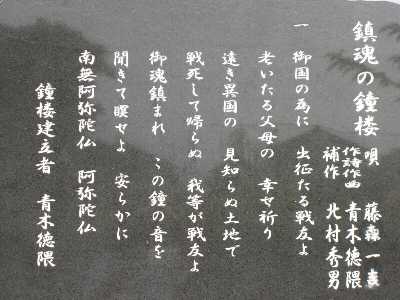 鎮魂の鐘楼
唄 藤森一義
作詩作曲 青木徳隈
補作 北村秀男
一 御国の為に 出征たる戦友よ
老いたる父母の 幸せ祈り
遠き異国の 見知らぬ土地で
戦死して帰らぬ 我等が戦友よ
御魂鎮まれ この鐘の音を
聞きて瞑せよ 安らかに
南無阿弥陀仏 阿弥陀仏
鐘楼建立者 青木徳隈